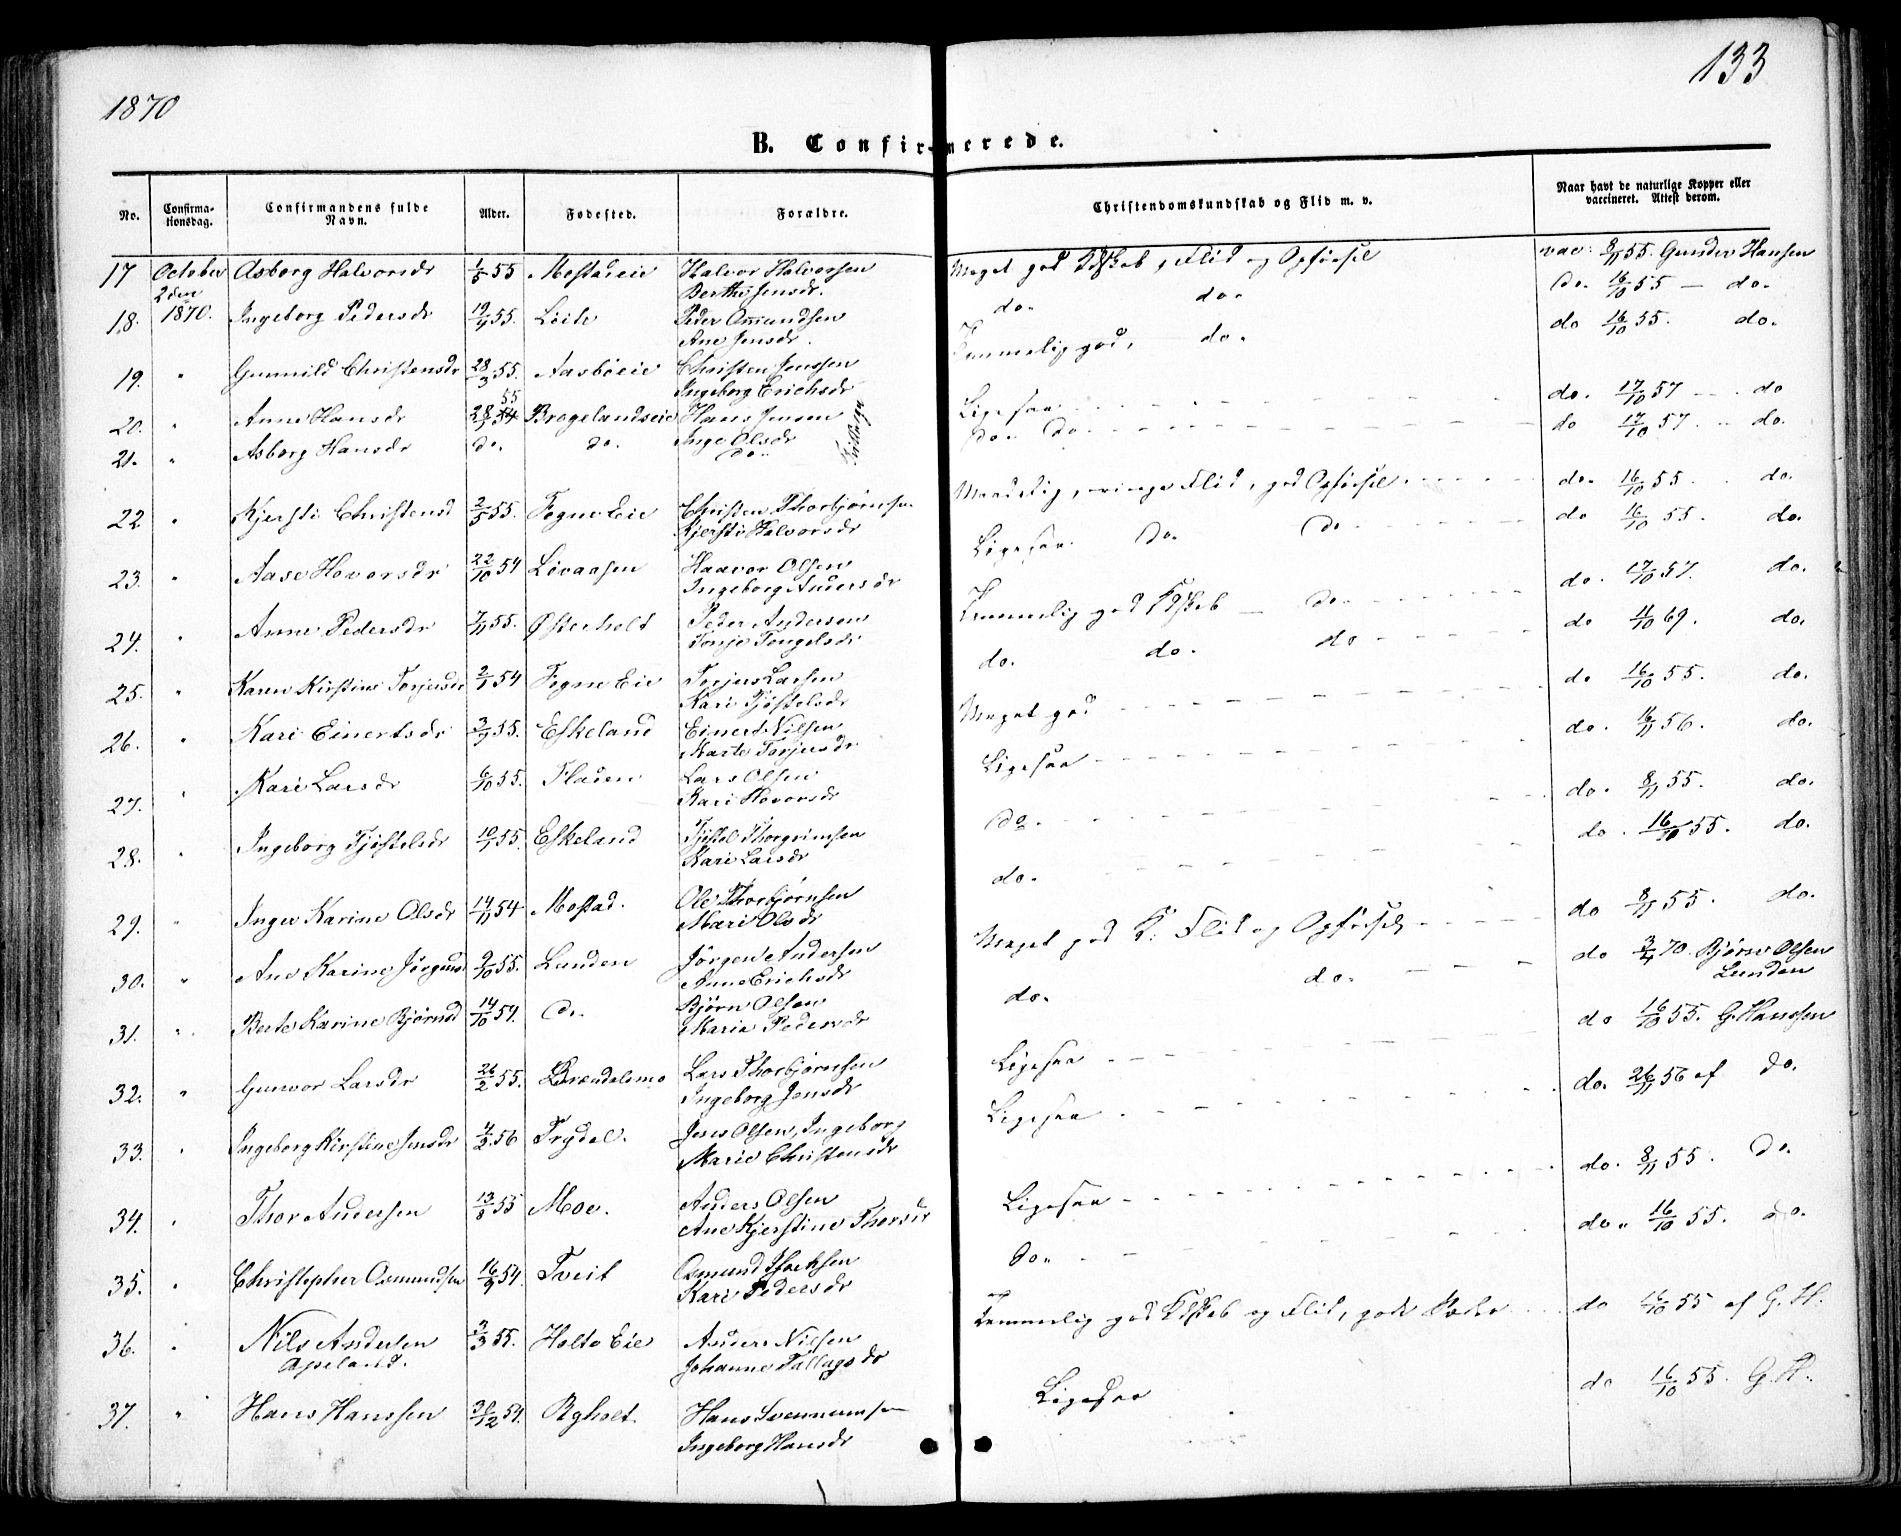 1870
133
B. Confirmerede.
No. Confirmationsdag. Confirmandens fulde Navn. Alder. Fødested. Forældre. Christendomskundskab og Flid m. v. Naar havt de naturlige Kopper eller vaccineret. Attest derom.
17 October 2den 1870. Asborg Halvorsdr 1/5 55 Mostadeie Halvor Halvorsen Meget god Kdskab, Flid og Opførsel vac: 8/11 55. Gunder Hansen
Berthe Jensdr.
18. Ingeborg Pedersdr 19/4 55. Peder Omundsen do. do. Do. 16/10 55 — do.
Ane Jensdr.
19. " Gunnild Christensdr 28/3 55. Aasbøeie Christen Jenssen Temmelig god, do. do 16/10 55. do.
Ingeborg Erichsdr
20. " Anne Hansdr 55 Brogelandseie Hans Jensen Ligesaa do. 17/10 57 do
Inge Olsdr
21. " Asborg Hansdr do. do. do. Do. Do do 17/10 57. do.
22 " Kjersti Christensd 2/5 55. Fogne Eie Christen Thorbjørnsen Maadelig, ringe Flid, god Opførsel do. 16/10 55 do.
Kjersti Halvorsdr
23. " Aase Hovorsdr 22/10 54 Løvaasen Haavor Olsen Ligesaa Do. Do do 16/10 55. do.
Ingeborg Andersdr
24. " Anne Pedersdr 7/11 55. Østerholt Peder Andersen Temmelig god Kdskab — do. do. 17/10 57. do.
Tonje Tengelsdr
25. " Karen Kirstine Torjusdr 2/1 54 Fogne Eie Torjus Larsen do. do. do do 4/10 69. do.
Kari Tjøstelsdr
26. " Kari Einertsdr 3/9 55. Eskeland Einert Nilsen Meget god do 16/10 55. do.
Marte Torjusdr
27. " Kari Larsdr 6/10 55. Fladen Lars Olsen Ligesaa do. 16/11 56. do.
Kari Hovorsdr
28. " Ingeborg Tjøstelsdr 10/1 55. Eskeland Tjøstel Thorgrimsen do. do. 8/11 55. do.
Kari Larsdr
29. " Inger Karine Olsdr 14/11 54 Mostad. Ole Thorbjørnsen do. do. 16/10 55. do.
Mari Olsdr
30. " Ane Karine Jørgensd 9/10 55. Lunden Jørgen Andersen Meget god K. Flid og Opførsel do 8/11 55. do.
Anne Erichsdr
31. " Berte Karine Bjørnsd 14/10 54. do. Bjørn Olsen do. do. do 3/4 70. Bjørn Olsen Lunden
Marie Pedersdr
32. " Gunvor Larsdr 26/2 55. Brændalsmo Lars Thorbjørnsen Ligesaa do 16/10 55. G. Hanssen
Ingeborg Jensdr
33. " Ingeborg Kirstine Jensdr 4/2 56 Frydal. Jens Olsen, Ingeborg Ligesaa do. 26/11 56 af Do.
Marie Christensdr
34. " Thor Andersen 13/8 55 Moe. Anders Olsen Ligesaa do. 8/11 55. Do.
Ane Kjerstine Thorsdr
35. " Christopher Osmundsen 16/9 54. Tveit Osmund Isacksen Do. do. 16/10 55. do.
Kari Pedersdr
36. " Nils Andersen 3/3 55. Holte Eie Anders Nilsen Temmelig god Kdskab og Flid, gode Sæder do 16/10 55 af G. H.
Apeland. Johanne Tallagsdr
37. " Hans Hanssen 31/12 54. Hans Svennumsen Ligesaa do 16/10 55. G. H.
Ingeborg Hansdr